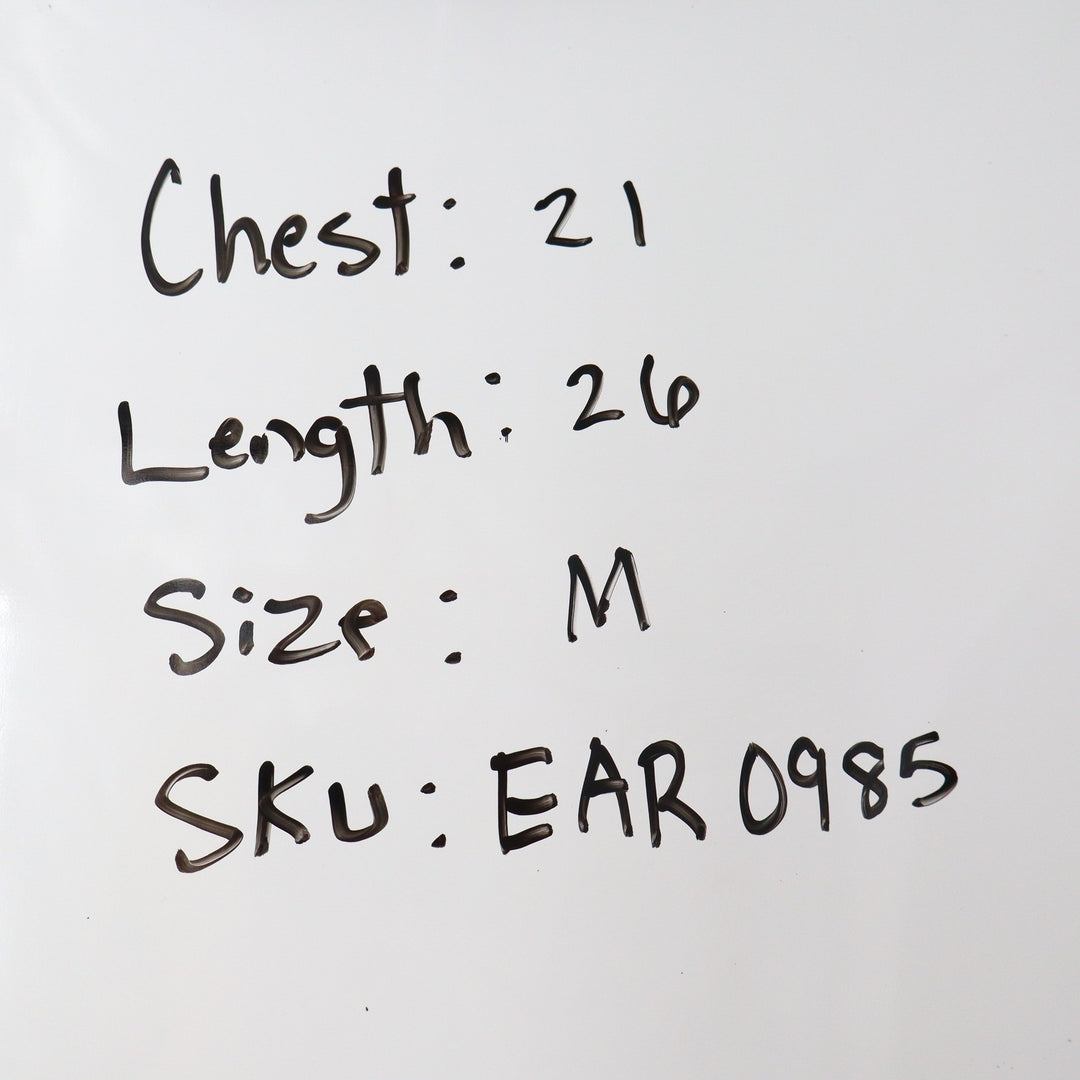 Chest: 21
Length: 26
Size: M
SKU: EAR 0985